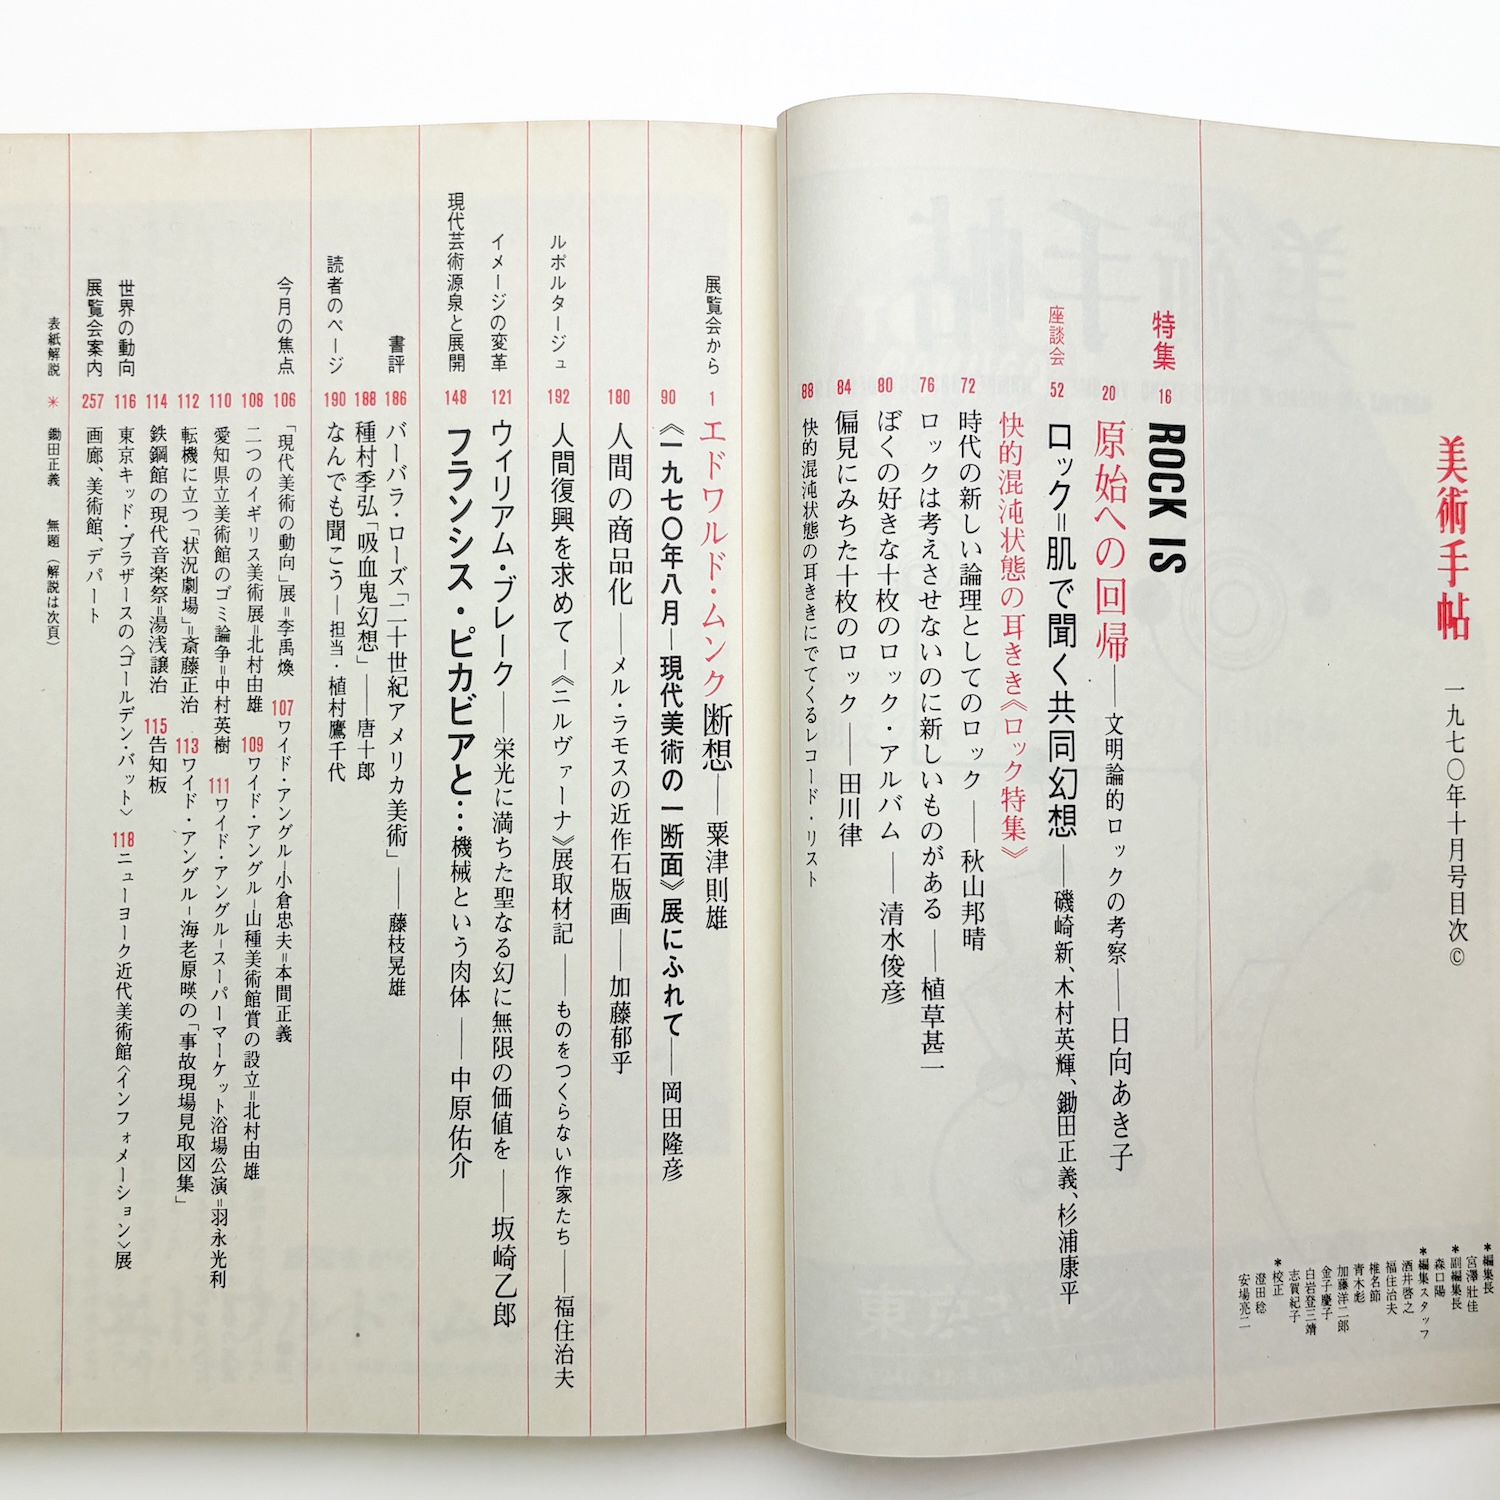 美術手帖 一九七〇年十月号目次©
＊編集長
宮澤壯佳
＊副編集長
森口陽
＊編集スタッフ
酒井啓之
福住治夫
椎名節
青木彪
加藤洋二郎
金子慶子
白岩登三靖
志賀紀子
＊校正
澄田稔
安場亮二
特集 16 ROCK IS
20 原始への回帰——文明論的ロックの考察——日向あき子
座談会 52 ロック=肌で聞く共同幻想——磯崎新、木村英輝、鋤田正義、杉浦康平
快的混沌状態の耳きき《ロック特集》
72 時代の新しい論理としてのロック——秋山邦晴
76 ロックは考えさせないのに新しいものがある——植草甚一
80 ぼくの好きな十枚のロック・アルバム——清水俊彦
84 偏見にみちた十枚のロック——田川律
88 快的混沌状態の耳ききにでてくるレコード・リスト
展覧会から 1 エドワルド・ムンク断想——粟津則雄
90 《一九七〇年八月—現代美術の一断面》展にふれて——岡田隆彦
180 人間の商品化——メル・ラモスの近作石版画——加藤郁乎
ルポルタージュ 192 人間復興を求めて—《ニルヴァーナ》展取材記——ものをつくらない作家たち——福住治夫
イメージの変革 121 ウィリアム・ブレーク——栄光に満ちた聖なる幻に無限の価値を——坂崎乙郎
現代芸術源泉と展開 148 フランシス・ピカビアと…機械という肉体——中原佑介
書評 186 バーバラ・ローズ「二十世紀アメリカ美術」——藤枝晃雄
188 種村季弘「吸血鬼幻想」——唐十郎
読者のページ 190 なんでも聞こう—担当・植村鷹千代
今月の焦点 106 「現代美術の動向」展=李禹煥 107 ワイド・アングル—小倉忠夫=本間正義
108 二つのイギリス美術展=北村由雄 109 ワイド・アングル—山種美術館賞の設立=北村由雄
110 愛知県立美術館のゴミ論争=中村英樹 111 ワイド・アングル—スーパーマーケット浴場公演=羽永光利
112 転機に立つ「状況劇場」=斎藤正治 113 ワイド・アングル—海老原暎の「事故現場見取図集」
114 鉄鋼館の現代音楽祭=湯浅譲治 115 告知板
世界の動向 116 東京キッド・ブラザースの〈ゴールデン・バット〉 118 ニューヨーク近代美術館〈インフォメーション〉展
展覧会案内 257 画廊、美術館、デパート
表紙解説 ＊ 鋤田正義 無題（解説は次頁）